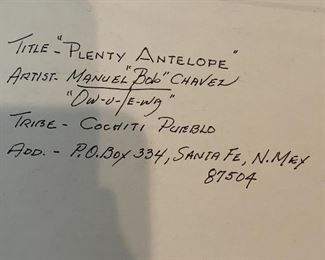 TITLE - "PLENTY ANTELOPE"
ARTIST - MANUEL "BOB" CHAVEZ
"OW-U-TE-WA"
TRIBE - COCHITI PUEBLO
ADD. - P.O. BOX 334, SANTA FE, N. MEX
87504